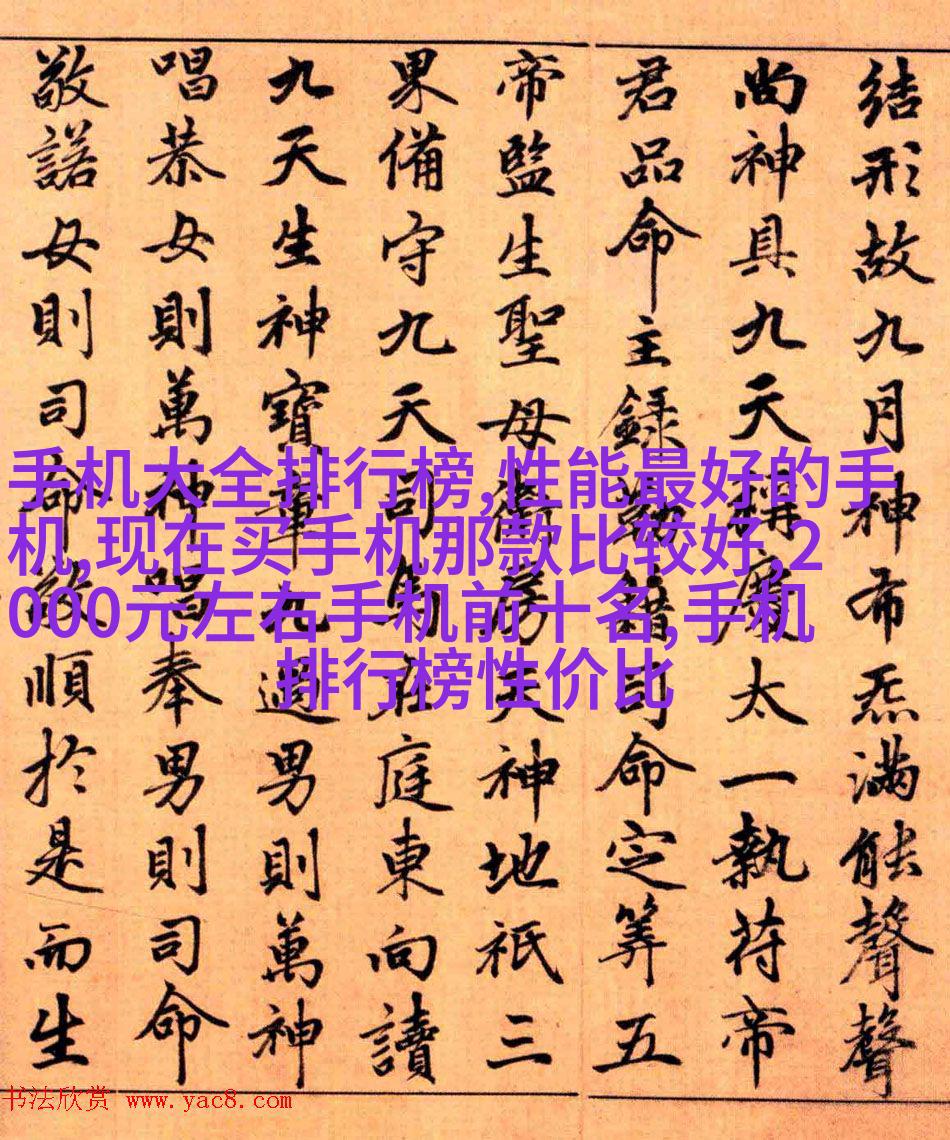 結形故九月神布炁滿能聲聲
尚神具九天稱慶太一執苻帝
君品命主録勒籍司命定筭五
帝監生聖母衛房天神地祇三
果備守九天司馬在庭東向讀
九天生神寶章九過男則萬神
唱恭女則萬神唱奉男則司命
敬諾女則司命敬順於是而生
手机大全排行榜,性能最好的手
机,现在买手机那款比较好,2
000元左右手机前十名,手机
排行榜性价比
书法欣赏 www.yac8.com